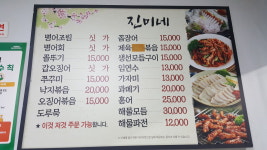 진미네
병어조림 싯가
병어회 싯가
쭈꾸미 15,000
낙지볶음 20,000
오징어볶음 15,000
도루묵
꼼장어 15,000
제육볶음 15,000
생선모듬구이 15,000
임연수 15,000
가자미 15,000
과메기 20,000
홍어 25,000
해물모듬 30,000
해물파전 12,000
이것 저것 주문 가능합니다.